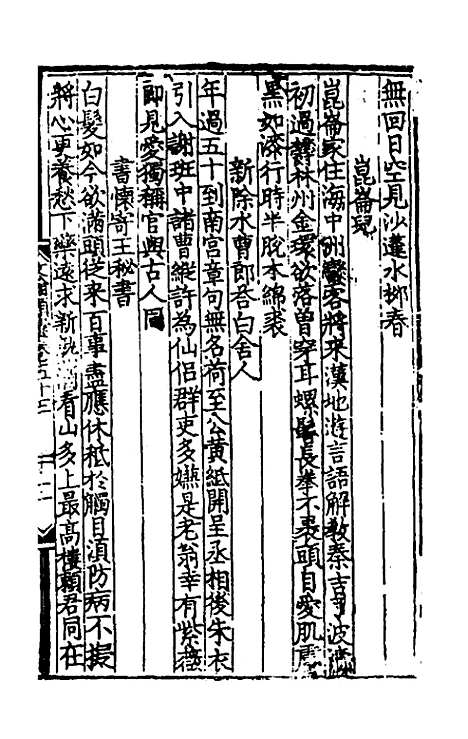 無回日空見沙蓬水柳春
崑崙兒
崑崙家住海中洲蠻客將來漢地遊言語解教秦吉了波濤
初過欝林州金環欲落曽穿耳螺髻長拳不裹頭自愛肌膚
黒如漆行時半脫木綿裘
新除水曹郎荅白舍人
年過五十到南宮章句無名荷至公黄紙開呈丞相後朱衣
引入謝班中諸曹縱許為仙侣群吏多嫌是老翁幸有紫薇
郎見愛獨稱官與古人同
書懷寄王秘書
白髮如今欲滿頭從来百事盡應休秪於觸目湏防病不擬
將心更養愁下藥逺求新熟 看山多上最高樓頼君同在
卷九十三